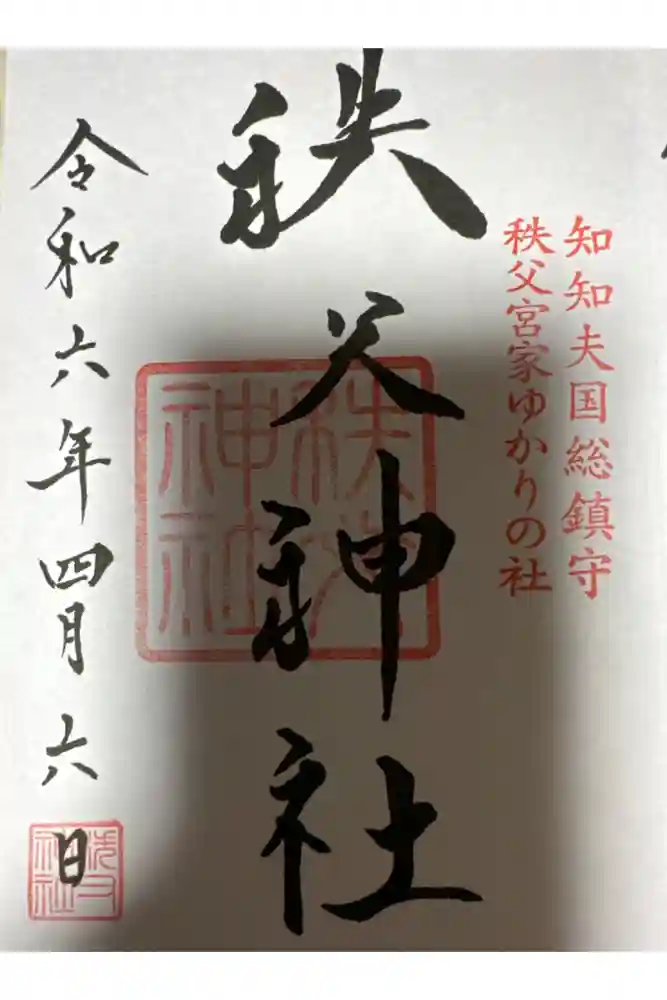 知知夫国総鎮守
秩父宮家ゆかりの社
秩父神社
秩父神社
令和六年四月六日